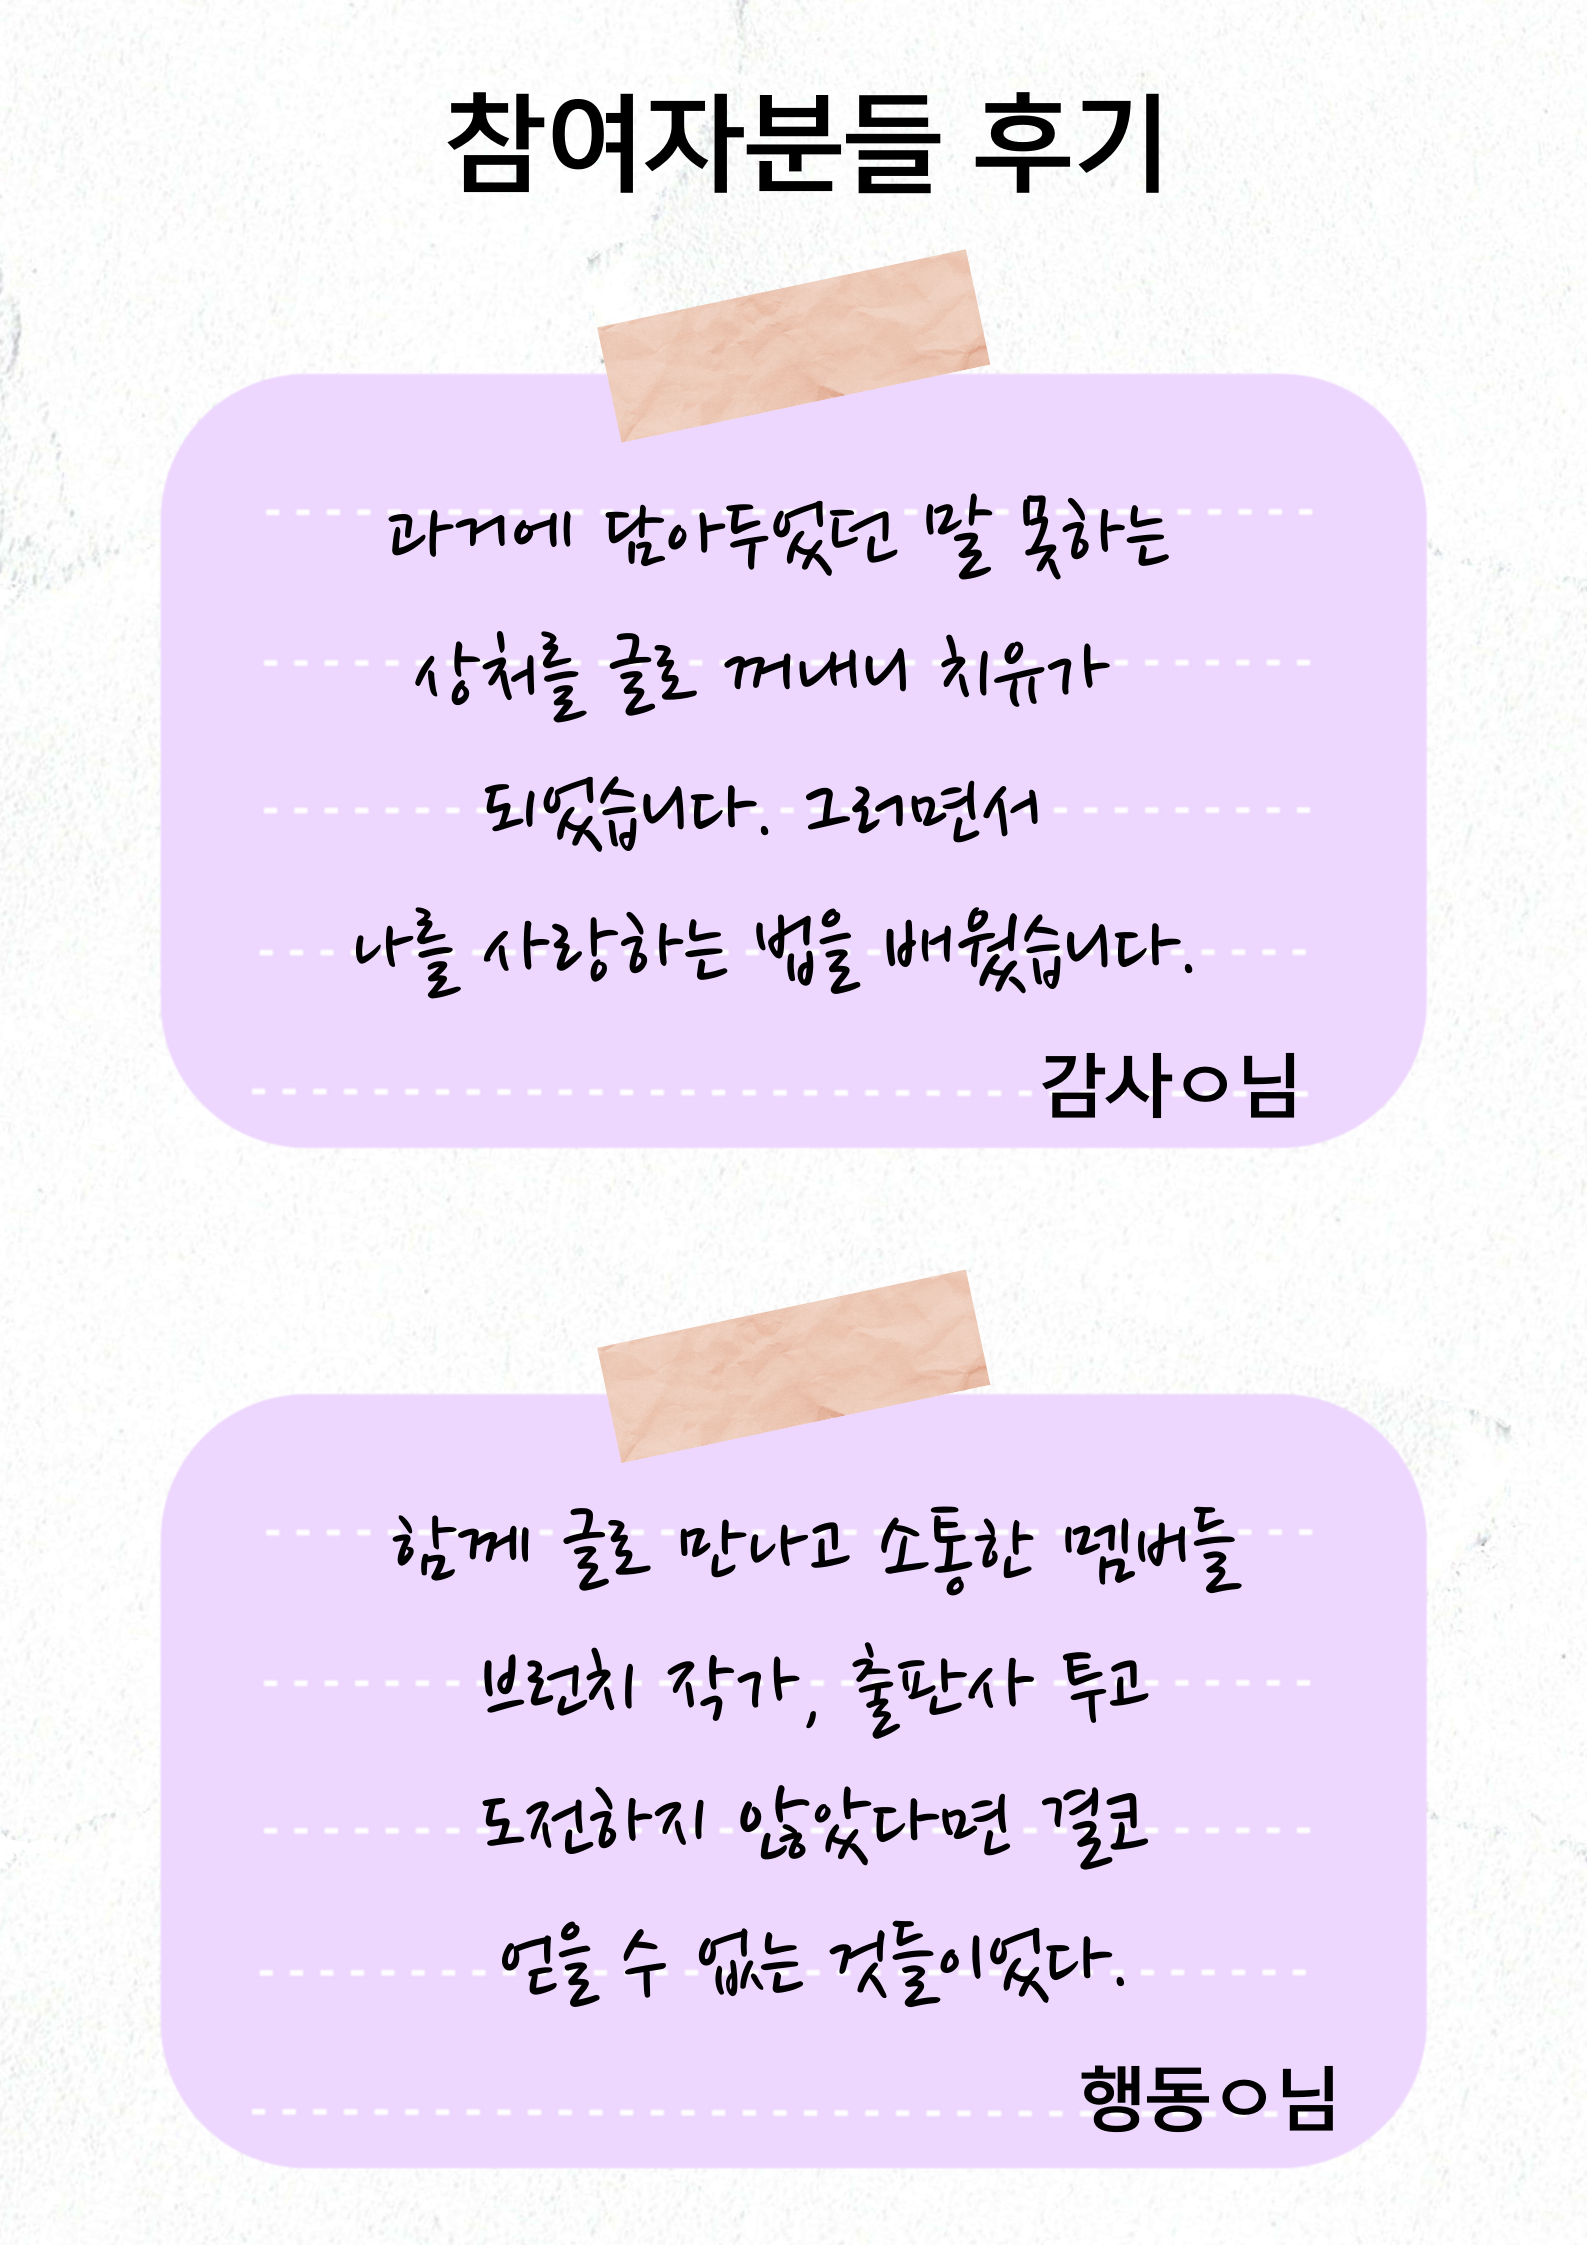 참여자분들 후기
과거에 담아두었던 말 못하는
상처를 글로 꺼내니 치유가
되었습니다. 그러면서
나를 사랑하는 법을 배웠습니다.
감사ㅇ님
함께 글로 만나고 소통한 멤버들
브런치 작가, 출판사 투고
도전하지 않았다면 결코
얻을 수 없는 것들이었다.
행동ㅇ님